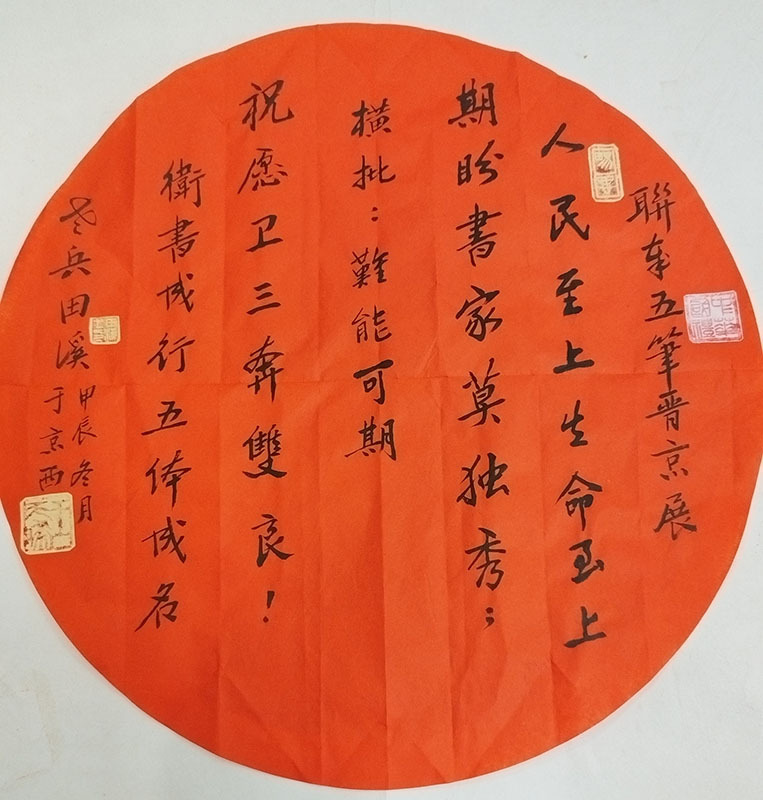 聯奉五筆晋京展
人民至上生命至上
期盼書家莫独秀；
橫批：難能可期
祝愿卫三奔雙良！
衛書成行五体成名
老兵田溪
甲辰冬月
于京西